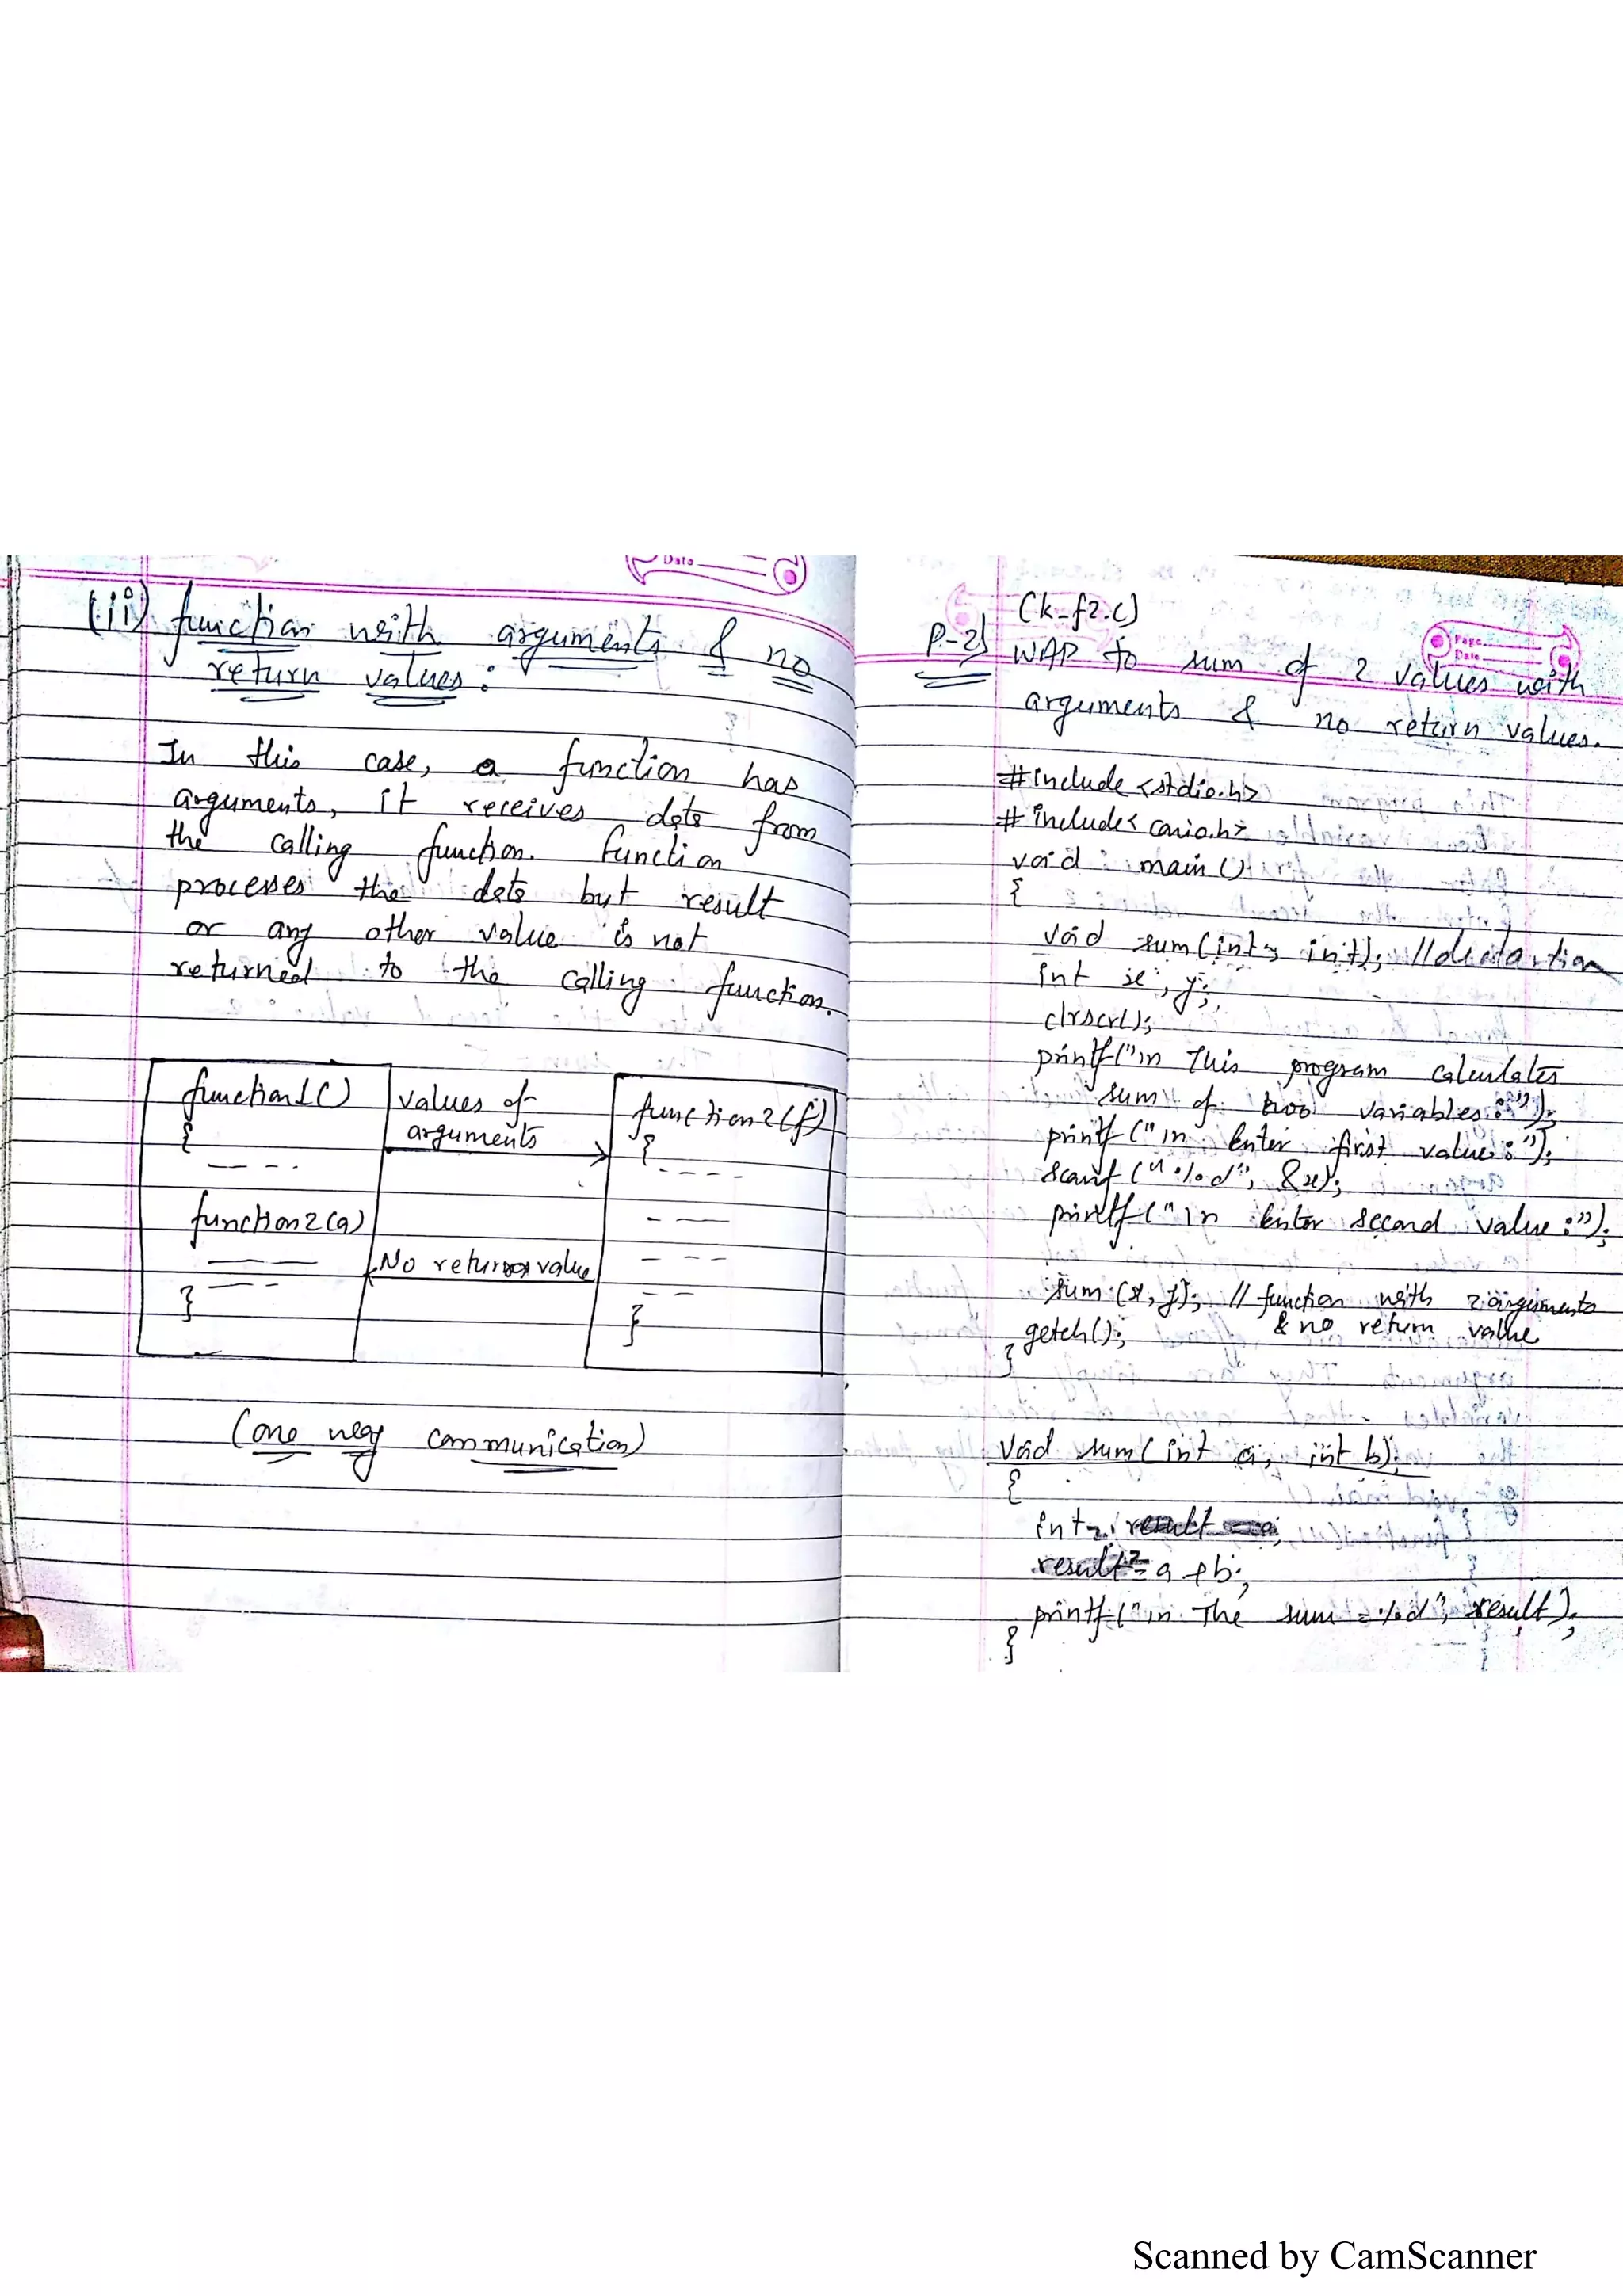 Date
(ii) function with arguments & no
return values :
In this case, a function has
arguments, it receives data from
the calling function. Function
processes the data but result
or any other value is not
returned to the calling function.
function1()
{
function2(a)
}
values of
arguments
No return value
function2(f)
{
}
(one way communication)
(k-f2.c)
Page
Date
P-2) WAP to sum of 2 values with
arguments & no return values.
#include <stdio.h>
#include< conio.h>
void main()
{
void sum(int, int); //declartion
int x, y;
clrscr();
printf("\n This program calculates
sum of two variables:");
printf("\n Enter first value:");
scanf("%d", &x);
printf("\n Enter second value:");
sum(x, y); // function with 2 arguments
& no return value
getch();
}
void sum( int a, int b);
{
int result
result = a+b;
printf("\n The sum = %d", result);
}
Scanned by CamScanner